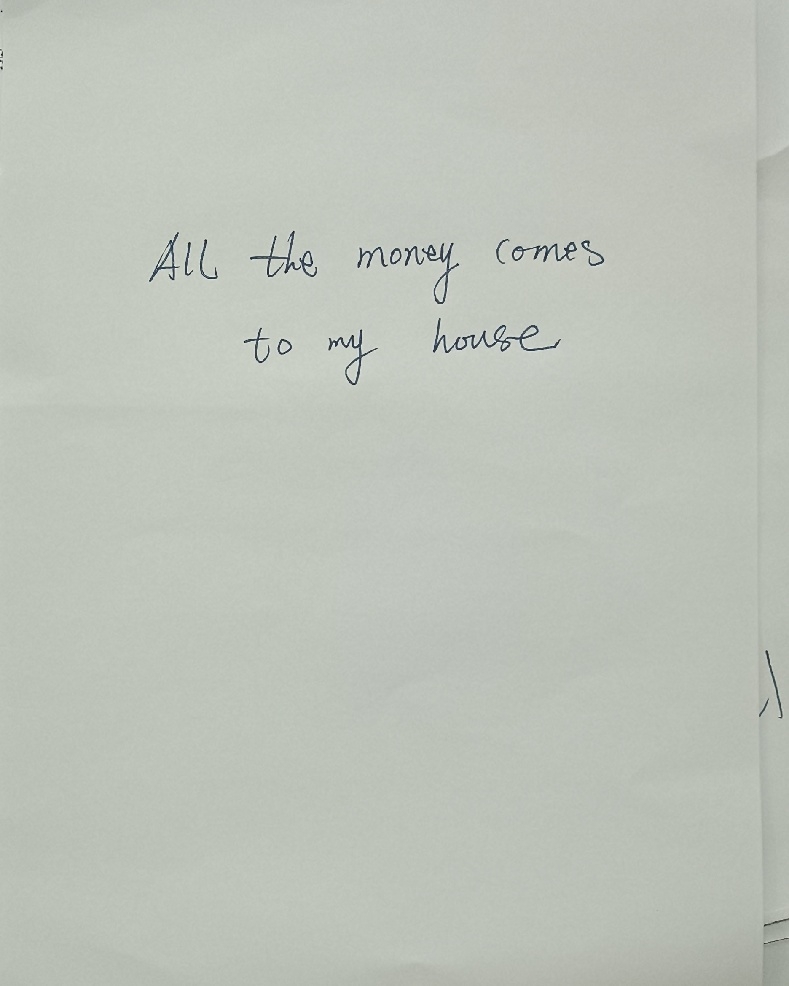 All the money comes
to my house